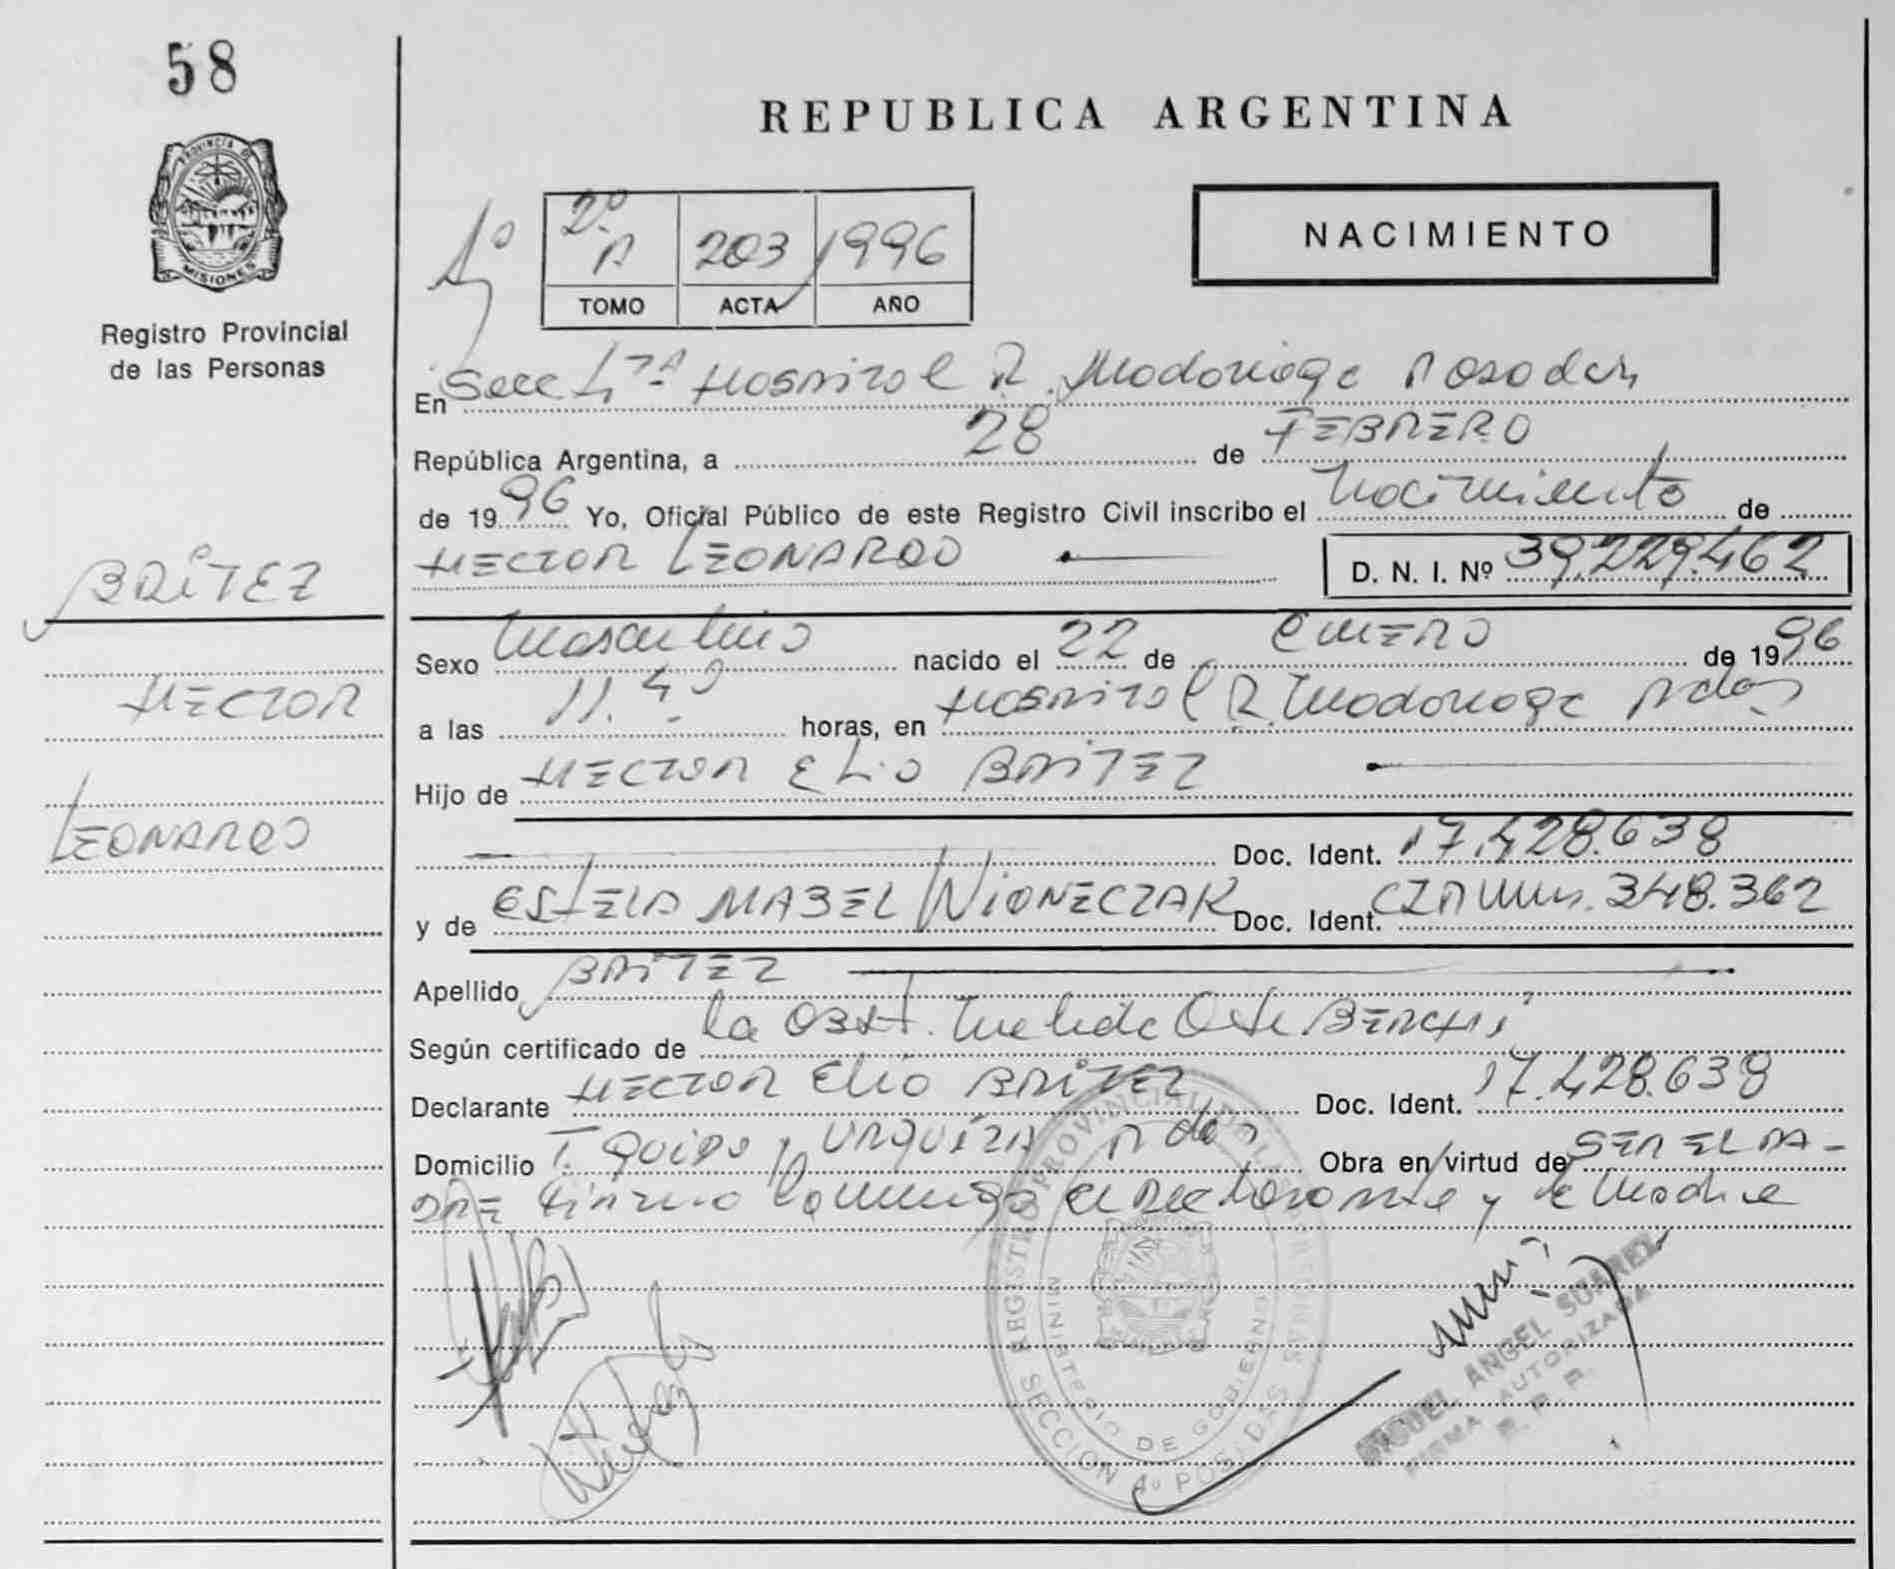 58
PROVINCIA DE
MISIONES
Registro Provincial
de las Personas
REPUBLICA ARGENTINA
NACIMIENTO
1º
2º
203 1996
TOMO ACTA AÑO
En Secc 4ta Hospital R. Madariaga Posadas
República Argentina, a 28 de FEBRERO
de 1996 Yo, Oficial Público de este Registro Civil inscribo el Nacimiento de
HECTOR LEONARDO D. N. I. Nº 39.229.462
BRITEZ
HECTOR
LEONARDO
Sexo Masculino nacido el 22 de ENERO de 1996
a las 11.40 horas, en Hospital R. Madariaga Pdas
Hijo de HECTOR ELIO BRITEZ
Doc. Ident. 17.428.638
y de ESTELA MABEL WIONECZAK Doc. Ident. 348.362
Apellido BRITEZ
Según certificado de la OBST. de
Declarante HECTOR ELIO BRITEZ Doc. Ident. 17.428.638
Domicilio y URQUIZA Pdas Obra en virtud de SER EL PA-
DRE el Declarante y la Madre
REGISTRO PROVINCIAL DE LAS PERSONAS
MINISTERIO DE GOBIERNO
SECCION 4º POSADAS
MIGUEL ANGEL SUAREZ
FIRMA AUTORIZADA
R. P. P.